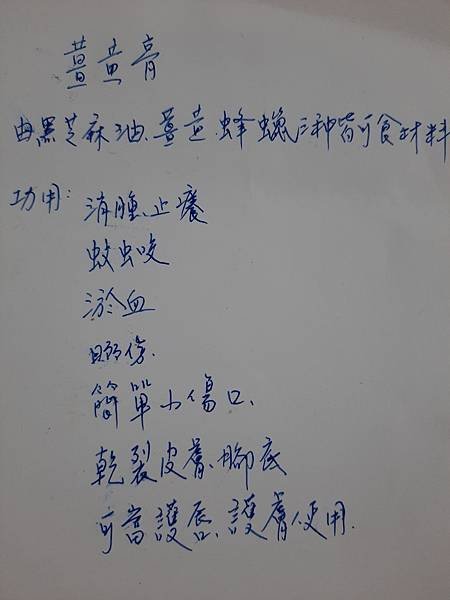 薑黃膏
由黑芝麻油、薑黃、蜂蠟三种皆可食材料
功用: 消腫、止癢
蚊虫咬
淤血
伤.
簡單小傷口、
乾裂皮膚、腳底
可當護唇、護膚使用.